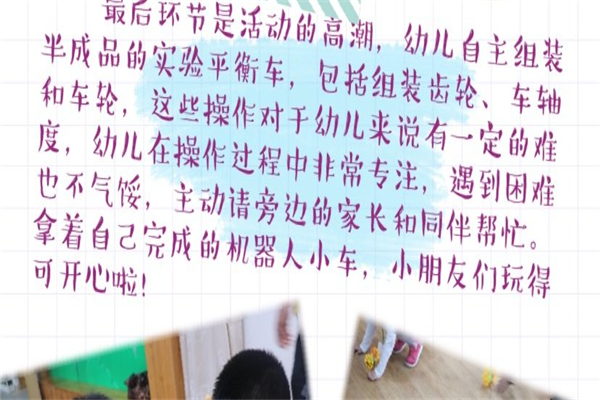 最后环节是活动的高潮，幼儿自主组装
半成品的实验平衡车，包括组装齿轮、车轴
和车轮，这些操作对于幼儿来说有一定的难
度，幼儿在操作过程中非常专注，遇到困难
也不气馁，主动请旁边的家长和同伴帮忙。
拿着自己完成的机器人小车，小朋友们玩得
可开心啦！